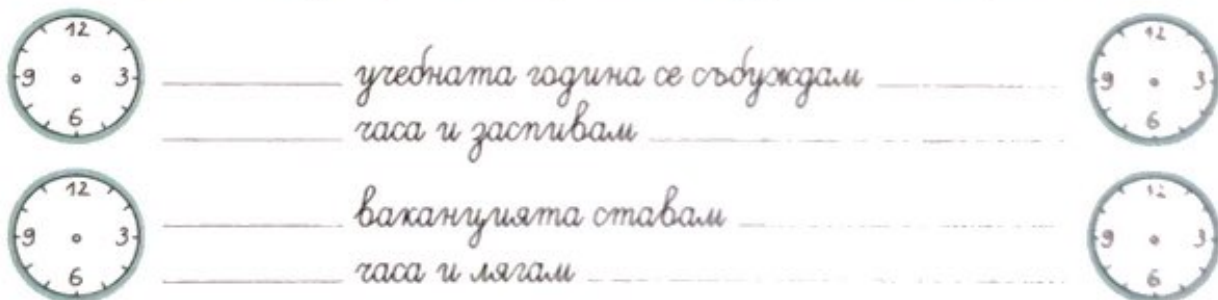 12
9 3
6
_____ учебната година се събуждам _____
_____ часа и заспивам _____
12
9 3
6
12
9 3
6
_____ ваканцията ставам _____
_____ часа и лягам _____
12
9 3
6